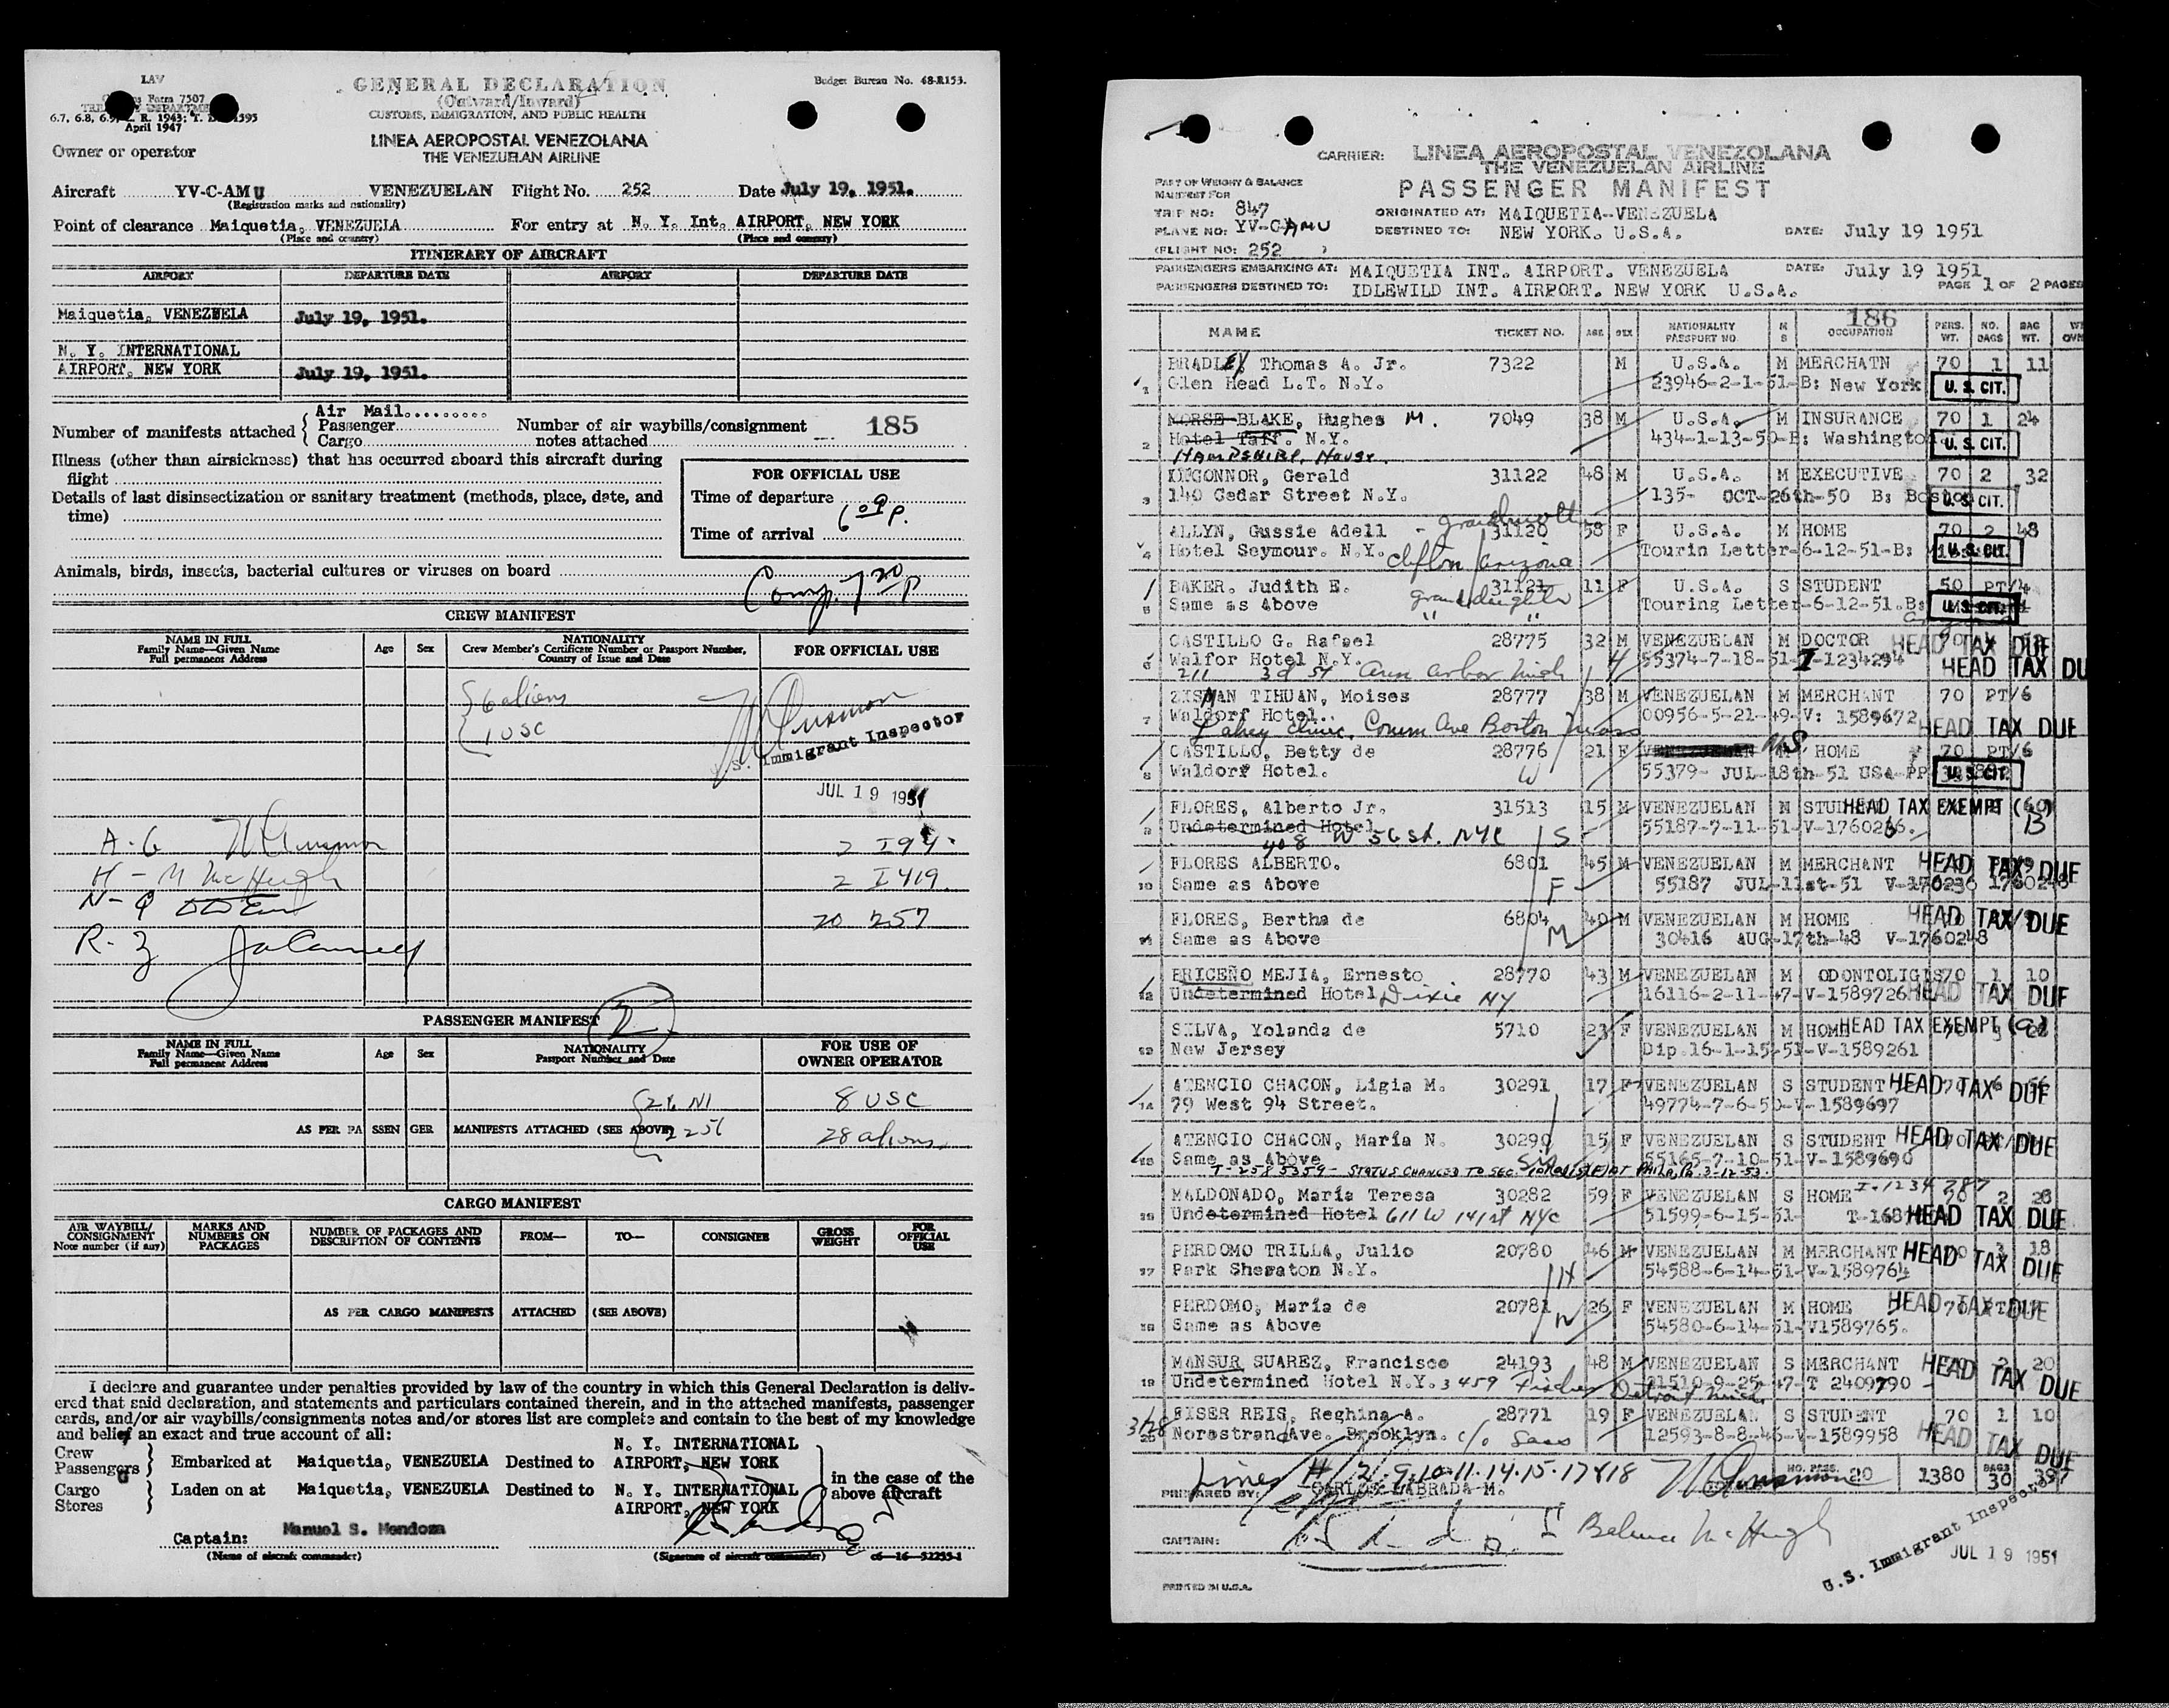 LAV
Customs Form 7507
TREASURY DEPARTMENT
6.7, 6.8, 6.9, C. R. 1943; T. D.
April 1947
GENERAL DECLARATION
(Outward/Inward)
CUSTOMS, IMMIGRATION, AND PUBLIC HEALTH
Budget Bureau No. 48-R153.
LINEA AEROPOSTAL VENEZOLANA
THE VENEZUELAN AIRLINE
Owner or operator
Aircraft YV-C-AMU VENEZUELAN Flight No. 252 Date July 19, 1951.
(Registration marks and nationality)
Point of clearance Maiquetia, VENEZUELA For entry at N. Y. Int. AIRPORT, NEW YORK
(Place and country) (Place and country)
ITINERARY OF AIRCRAFT
AIRPORT DEPARTURE DATE AIRPORT DEPARTURE DATE
Maiquetia, VENEZUELA July 19, 1951.
N. Y. INTERNATIONAL
AIRPORT, NEW YORK July 19, 1951.
Number of manifests attached
Air Mail.........
Passenger
Cargo
Number of air waybills/consignment
notes attached
185
Illness (other than airsickness) that has occurred aboard this aircraft during
flight
Details of last disinsectization or sanitary treatment (methods, place, date, and
time)
FOR OFFICIAL USE
Time of departure
Time of arrival 6 09 P.
Animals, birds, insects, bacterial cultures or viruses on board
Comp. 7 20 P
CREW MANIFEST
NAME IN FULL
Family Name—Given Name
Full permanent Address
Age Sex
NATIONALITY
Crew Member's Certificate Number or Passport Number,
Country of Issue and Date
FOR OFFICIAL USE
6 aliens
1 USC
U.S. Immigrant Inspector
JUL 19 1951
A-6 2 I94
H - M McHugh 2 I 419
N-9 20 257
R-3
PASSENGER MANIFEST
NAME IN FULL
Family Name—Given Name
Full permanent Address
Age Sex
NATIONALITY
Passport Number and Date
FOR USE OF
OWNER OPERATOR
8 USC
AS PER PASSENGER MANIFESTS ATTACHED (SEE ABOVE)
28 aliens
CARGO MANIFEST
AIR WAYBILL/
CONSIGNMENT
Note number (if any)
MARKS AND
NUMBERS ON
PACKAGES
NUMBER OF PACKAGES AND
DESCRIPTION OF CONTENTS
FROM— TO— CONSIGNEE
GROSS
WEIGHT
FOR
OFFICIAL
USE
AS PER CARGO MANIFESTS ATTACHED (SEE ABOVE)
I declare and guarantee under penalties provided by law of the country in which this General Declaration is deliv-
ered that said declaration, and statements and particulars contained therein, and in the attached manifests, passenger
cards, and/or air waybills/consignments notes and/or stores list are complete and contain to the best of my knowledge
and belief an exact and true account of all:
Crew
Passengers
Embarked at Maiquetia, VENEZUELA Destined to N. Y. INTERNATIONAL
AIRPORT, NEW YORK
Cargo
Stores
Laden on at Maiquetia, VENEZUELA Destined to N. Y. INTERNATIONAL
AIRPORT, NEW YORK
in the case of the
above aircraft
Captain: Manuel S. Mendoza
(Name of aircraft commander) (Signature of aircraft commander) c6—16—52255-1
CARRIER: LINEA AEROPOSTAL VENEZOLANA
THE VENEZUELAN AIRLINE
PASSENGER MANIFEST
PART OF WEIGHT & BALANCE
MANIFEST FOR
TRIP NO: 847
PLANE NO: YV-C-AMU
(FLIGHT NO: 252 )
ORIGINATED AT: MAIQUETIA-VENEZUELA
DESTINED TO: NEW YORK. U.S.A. DATE: July 19 1951
PASSENGERS EMBARKING AT: MAIQUETIA INT. AIRPORT. VENEZUELA DATE: July 19 1951
PASSENGERS DESTINED TO: IDLEWILD INT. AIRPORT. NEW YORK U.S.A. PAGE 1 OF 2 PAGES
186
NAME TICKET NO. AGE SEX NATIONALITY
PASSPORT NO M
S OCCUPATION PERS.
WT. NO.
BAGS BAG
WT.
BRADLEY Thomas A. Jr. 7322 M U.S.A. M MERCHATN 70 1 11
1 Glen Head L.T. N.Y. 23946-2-1-51-B: New York U. S. CIT.
MORSE BLAKE, Hughes M. 7049 38 M U.S.A. M INSURANCE 70 1 24
2 Hotel Taff. N.Y. 434-1-13-50-B: Washington U. S. CIT.
HAMPSHIRE House
O'CONNOR, Gerald 31122 48 M U.S.A. M EXECUTIVE 70 2 32
3 140 Cedar Street N.Y. 135- OCT-26th-50 B: Boston U. S. CIT.
ALLYN, Gussie Adell - grandmoth 31120 58 F U.S.A. M HOME 70 2 48
4 Hotel Seymour. N.Y. Clifton Arizona Tourin Letter-6-12-51-B: U. S. CIT.
BAKER. Judith E. 31121 11 F U.S.A. S STUDENT 50 PT/4
5 Same as Above granddaughter Touring Letter-6-12-51.B: U. S. CIT.
" "
CASTILLO G. Rafael 28775 32 M VENEZUELAN M DOCTOR HEAD TAX DUE
6 Walfor Hotel N.Y. H 55374-7-18-51-I-1234294 HEAD TAX DU
211 3d St Ann Arbor Mich
ZISMAN TIHUAN, Moises 28777 38 M VENEZUELAN M MERCHANT 70 PT/6
7 Waldorf Hotel. 00956-5-21-49-V: 1589672 HEAD TAX DUE
Lahey Clinic, Comm Ave Boston Mass
CASTILLO, Betty de 28776 21 F VENEZUELAN U.S. M HOME 70 PT/6
8 Waldorf Hotel. W 55379- JUL-18th-51 USA-PP U. S. CIT.
FLORES, Alberto Jr. 31513 15 M VENEZUELAN M STUDENT HEAD TAX EXEMPT
9 Undetermined Hotel 55187-7-11-51-V-1760246. 13
408 W 56 St. NYC S
FLORES ALBERTO. 6801 45 M VENEZUELAN M MERCHANT HEAD TAX DUE
10 Same as Above F 55187 JUL-11st-51 V-176236 1760248
FLORES, Bertha de 6804 40 M VENEZUELAN M HOME HEAD TAX DUE
11 Same as Above M 30416 AUG-17th-48 V-1760248
BRICEÑO MEJIA, Ernesto 28770 43 M VENEZUELAN M ODONTOLIGIS 70 1 10
12 Undetermined Hotel Dixie NY 16116-2-11-47-V-1589726 HEAD TAX DUE
SILVA, Yolanda de 5710 23 F VENEZUELAN M HOME HEAD TAX EXEMPT (9)
13 New Jersey Dip.16-1-15-51-V-1589261
ATENCIO CHACON, Ligia M. 30291 17 F VENEZUELAN S STUDENT HEAD TAX DUE
14 79 West 94 Street. 49774-7-6-50-V-1589697
ATENCIO CHACON, María N. 30290 15 F VENEZUELAN S STUDENT HEAD TAX DUE
15 Same as Above Sis 55165-7-10-51-V-1589690
T-2585359- STATUS CHANGED TO SEC. 101(a)(15)(E) AT PHILA, PA. 3-12-53.
MALDONADO, María Teresa 30282 59 F VENEZUELAN S HOME I-1234287 70 2 28
16 Undetermined Hotel 611 W 141st NYC 51599-6-15-51- HEAD TAX DUE
PERDOMO TRILLA, Julio 20780 46 M VENEZUELAN M MERCHANT HEAD TAX DUE 18
17 Park Sheraton N.Y. H 54588-6-14-51-V-1589764
PERDOMO, María de 20781 26 F VENEZUELAN M HOME HEAD TAX DUE
18 Same as Above W 54580-6-14-51-V1589765.
MANSUR SUAREZ, Francisco 24193 48 M VENEZUELAN S MERCHANT HEAD TAX DUE 20
19 Undetermined Hotel N.Y. 3459 Fischer Detroit Mich. 31510-9-25-47-T 2409790
EISER REIS, Reghina A. 28771 19 F VENEZUELAN S STUDENT 70 1 10
20 3128 Norostrand Ave. Brooklyn. c/o Saas 12593-8-8-46-V-1589958 HEAD TAX DUE
Lines # 2-9-10-11-14-15-17&18 NO. PASS. 20 1380 BAGS 30 397
PREPARED BY: CARLOS LABRADA M.
CAPTAIN: Balance McHugh
U.S. Immigrant Inspector
JUL 19 1951
PRINTED IN U.S.A.